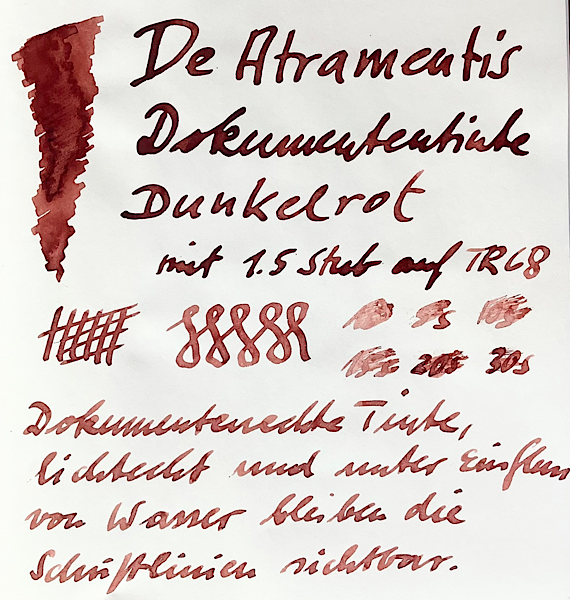 De Atramentis
Dokumententinte
Dunkelrot
mit 1.5 Stub auf TR68
5s 10s
15s 20s 30s
Dokumentenechte Tinte,
lichtecht und unter Einfluss
von Wasser bleiben die
Schriftlinien sichtbar.